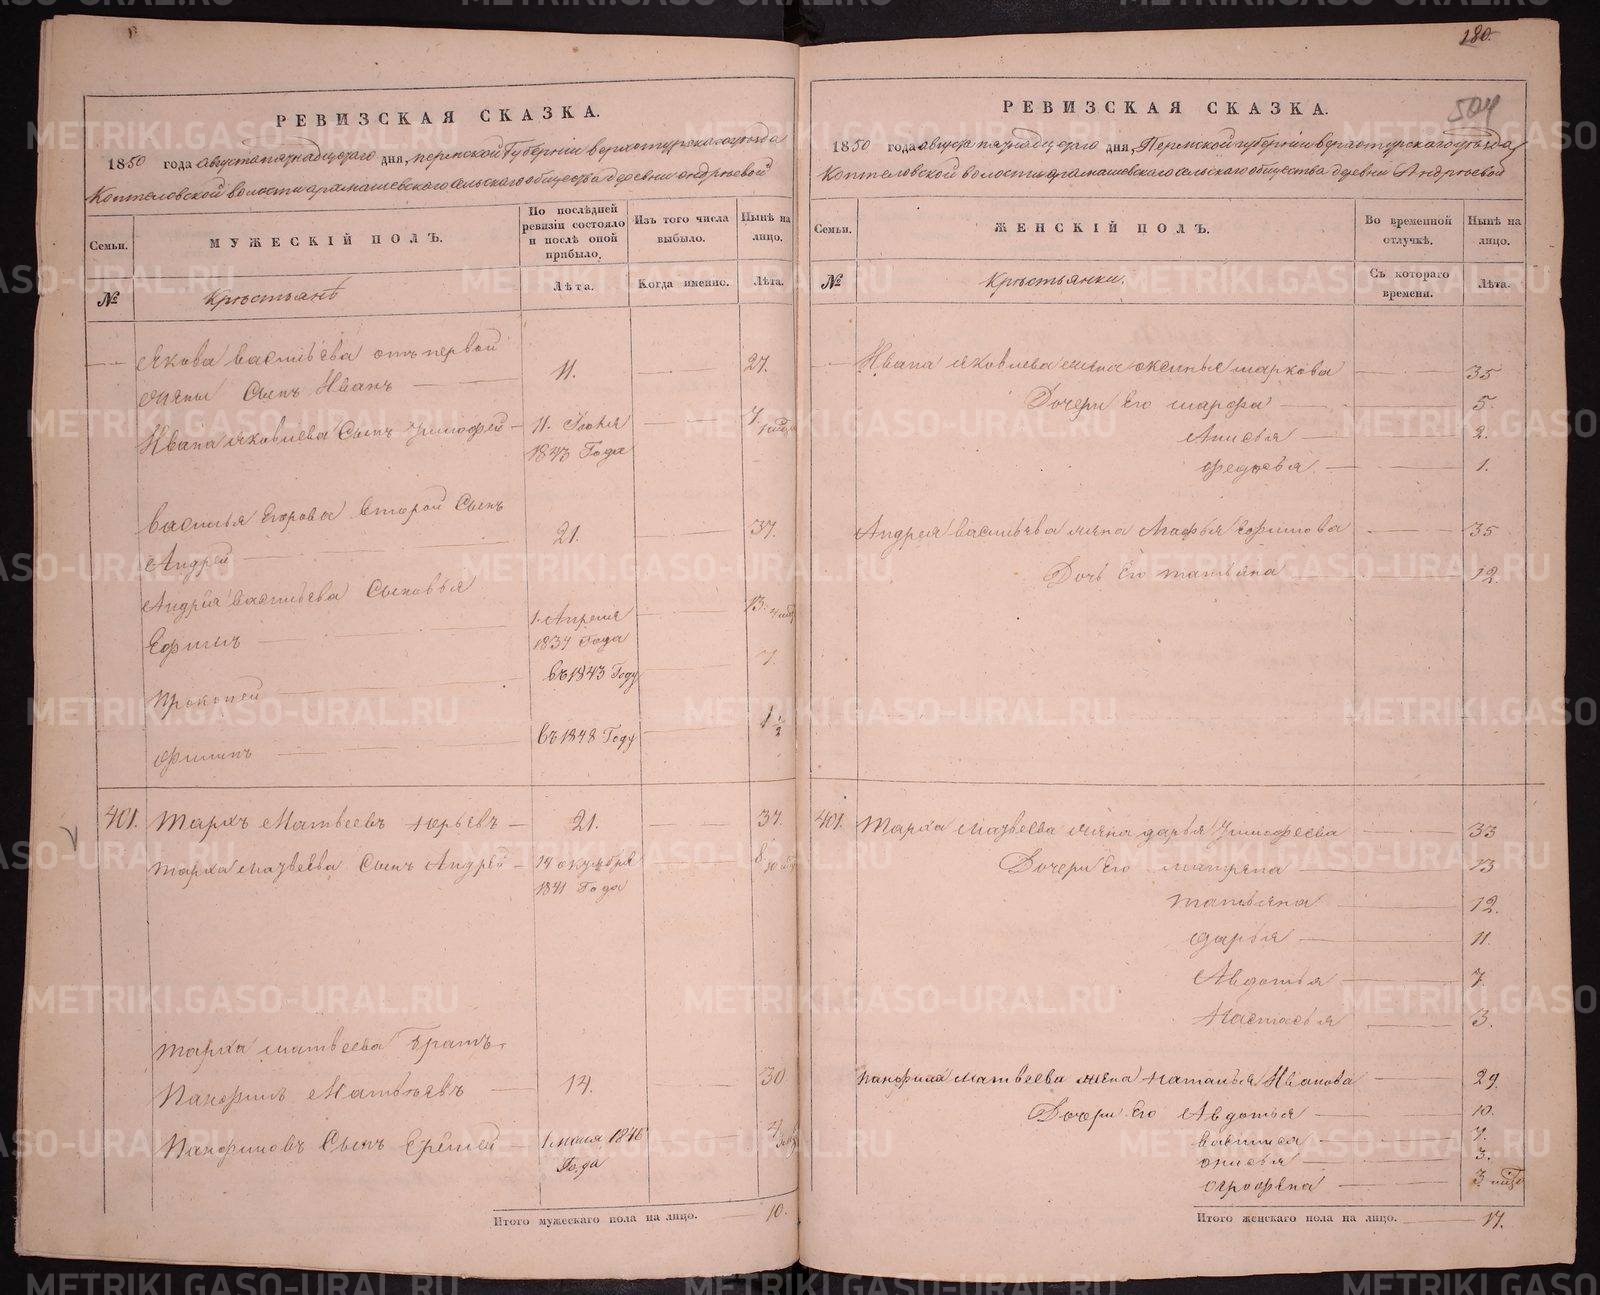 РЕВИЗСКАЯ СКАЗКА.
1850 года августа пятнадцатаго дня, Пермской Губерніи верхотурскаго уѣзда
Коптеловской волости арамашевскаго сельскаго общества деревни Андрѣевой
Семьи.
МУЖЕСКІЙ ПОЛЪ.
По послѣдней ревизіи состояло и послѣ оной прибыло.
Изъ того числа выбыло.
Нынѣ на лицо.
№
Крѣстьянѣ
Лѣта.
Когда именно.
Лѣта.
Якова васильева отъ первой
жены Сынъ Иванъ 11. 27.
Ивана яковлева Сынъ Тимофей 11. Іюня 7
1843 Года
василья Егорова второй Сынъ
Андрей 21. 37.
Андрея васильева Сыновья
Ефимъ 1. Апреля 13.
1837 Года
Прокопей въ 1843 Году 7.
Филипъ въ 1848 Году 1 1/2
401. Тархъ Матвеевъ Юрьевъ 21. 37.
Тарха матвеева Сынъ Андрей 14 октября 8
1841 Года
Тарха матвеева Братъ
Панфилъ Матвѣевъ 14. 30
Панфиловъ Сынъ Еремей 1. маия 1846
Года
Итого мужескаго пола на лицо. 10.
180.
504
РЕВИЗСКАЯ СКАЗКА.
1850 года августа пятнадцатаго дня, Пермской губерніи верхотурскаго уѣзда
Коптеловской волости арамашевскаго сельскаго общества деревни Андрѣевой
Семьи.
ЖЕНСКІЙ ПОЛЪ.
Во временной отлучкѣ.
Нынѣ на лицо.
№
Крѣстьянки.
Съ котораго времени.
Лѣта.
Ивана яковлева жена оксинья маркова 35
Дочери Его марфа 5.
Анисья 2.
Федосья 1.
Андрея васильева жена Агафья Ефимова 35
Дочь Его татьяна 12.
401. Тарха матвеева жена дарья Тимофеева 33
Дочери Его матрена 13
татьяна 12.
дарья 11.
Авдотья 7
Настасья 3.
Панфила матвеева жена наталья Иванова 29.
Дочери Его Авдотья 10.
василиса 7.
анисья 3.
огрофена 3
Итого женскаго пола на лицо. 17.
METRIKI.GASO-URAL.RU